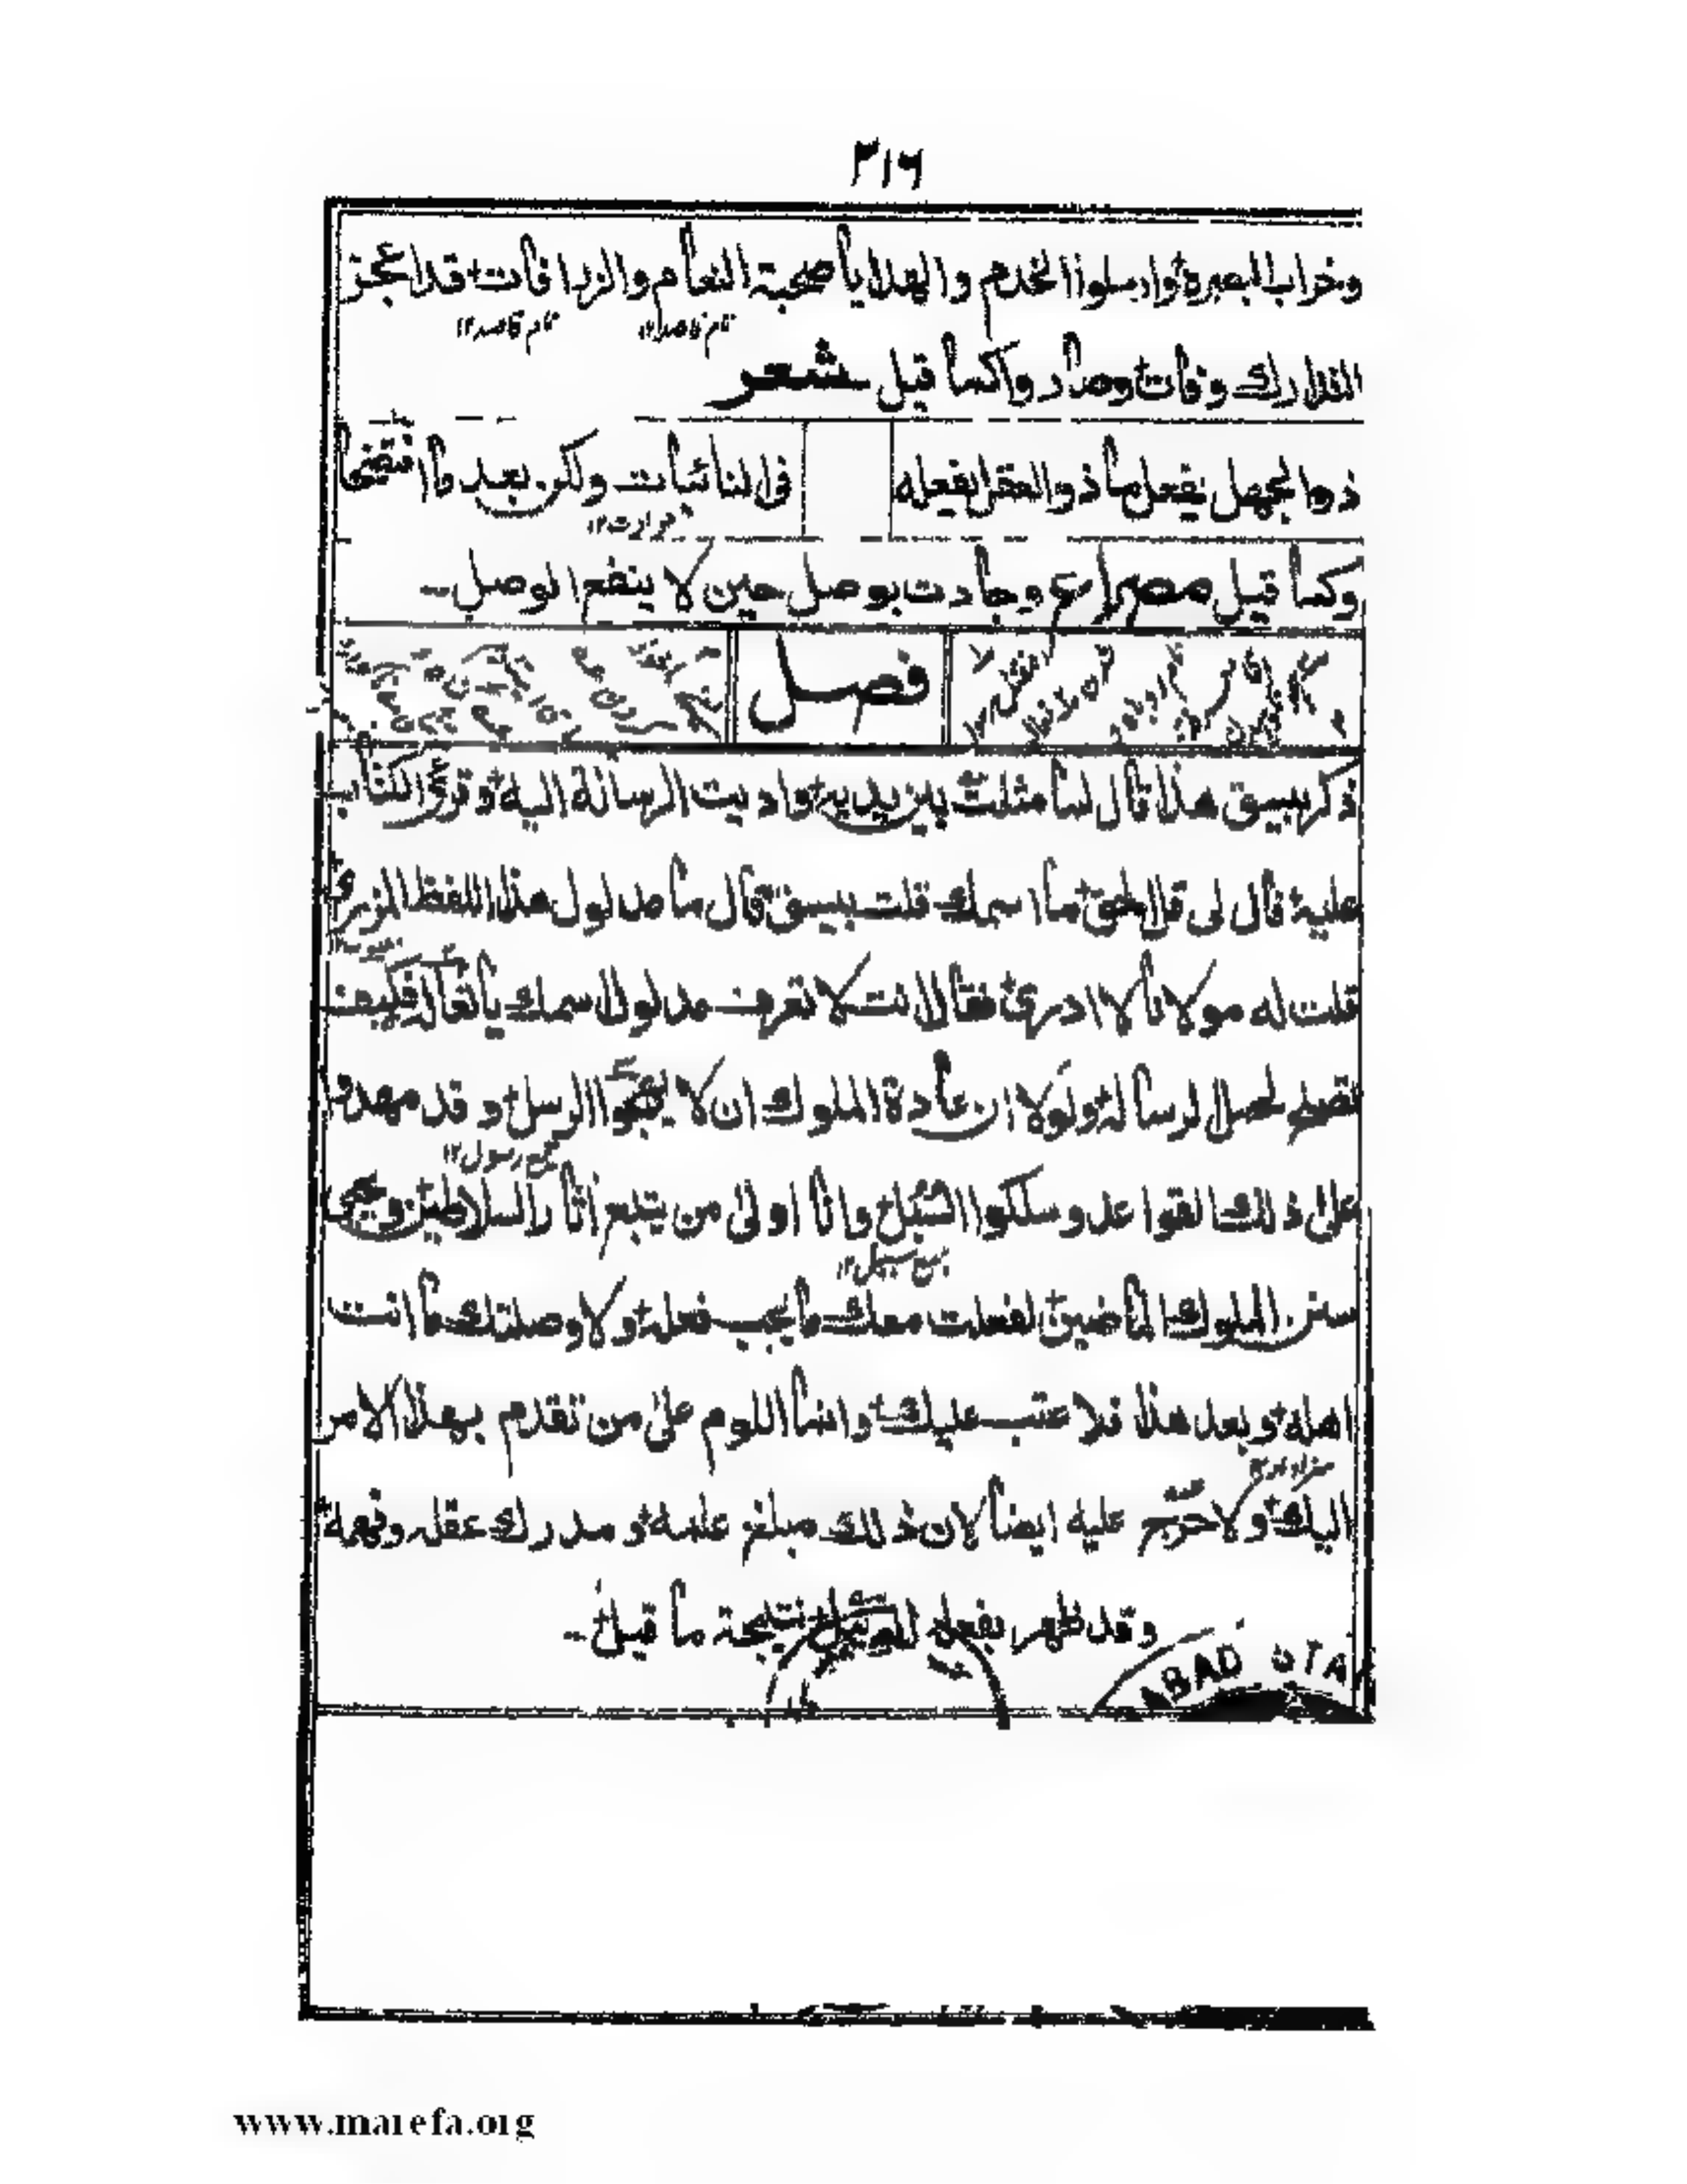 ٣١٦
وخراب البصرة وارسلوا الخدم والهدايا صحبة النعام والزرافات قد اعجز
نام قاصد١٢ نام قاصد١٢
التدارك وفات وصار واكما قيل شعر
ذو الجهل يفعل ما ذو العقل يفعله
فى النائبات ولكن بعد ما افتضحا
وكما قيل مصراع وجادت بوصل حين لا ينفع الوصل
فصل
ذكر بيسق هذا قال لما مثلت بين يديه واديت الرسالة اليه وقرئ الكتاب
عليه قال لى قل الحق ما اسمك قلت بيسق قال ما مدلول هذا اللفظ المزرو
قلت له مولانا لا ادرى فقال انت لا تعرف مدلول اسمك يا فكيف
تصلح لحمل الرسالة ولولا ان عادة الملوك ان لا يهيجوا الرسل وقد مهدوا
جمع رسول١٢
على ذلك القواعد وسلكوا السبل وانا اولى من يتبع اثار السلاطين ويحيى
جمع سبيل١٢
سنن الملوك الماضين لفعلت معك ما يجب فعله ولا وصلتك ما انت
اهله وبعد هذا فلا عتب عليك وانما اللوم على من تقدم بهذا الامر
اليك ولا حرج عليه ايضا لان ذلك مبلغ علمه ومدرك عقله وفهمه
وقد ظهر بفعله نتيجة ما قيل
ABAD STA
www.marefa.org